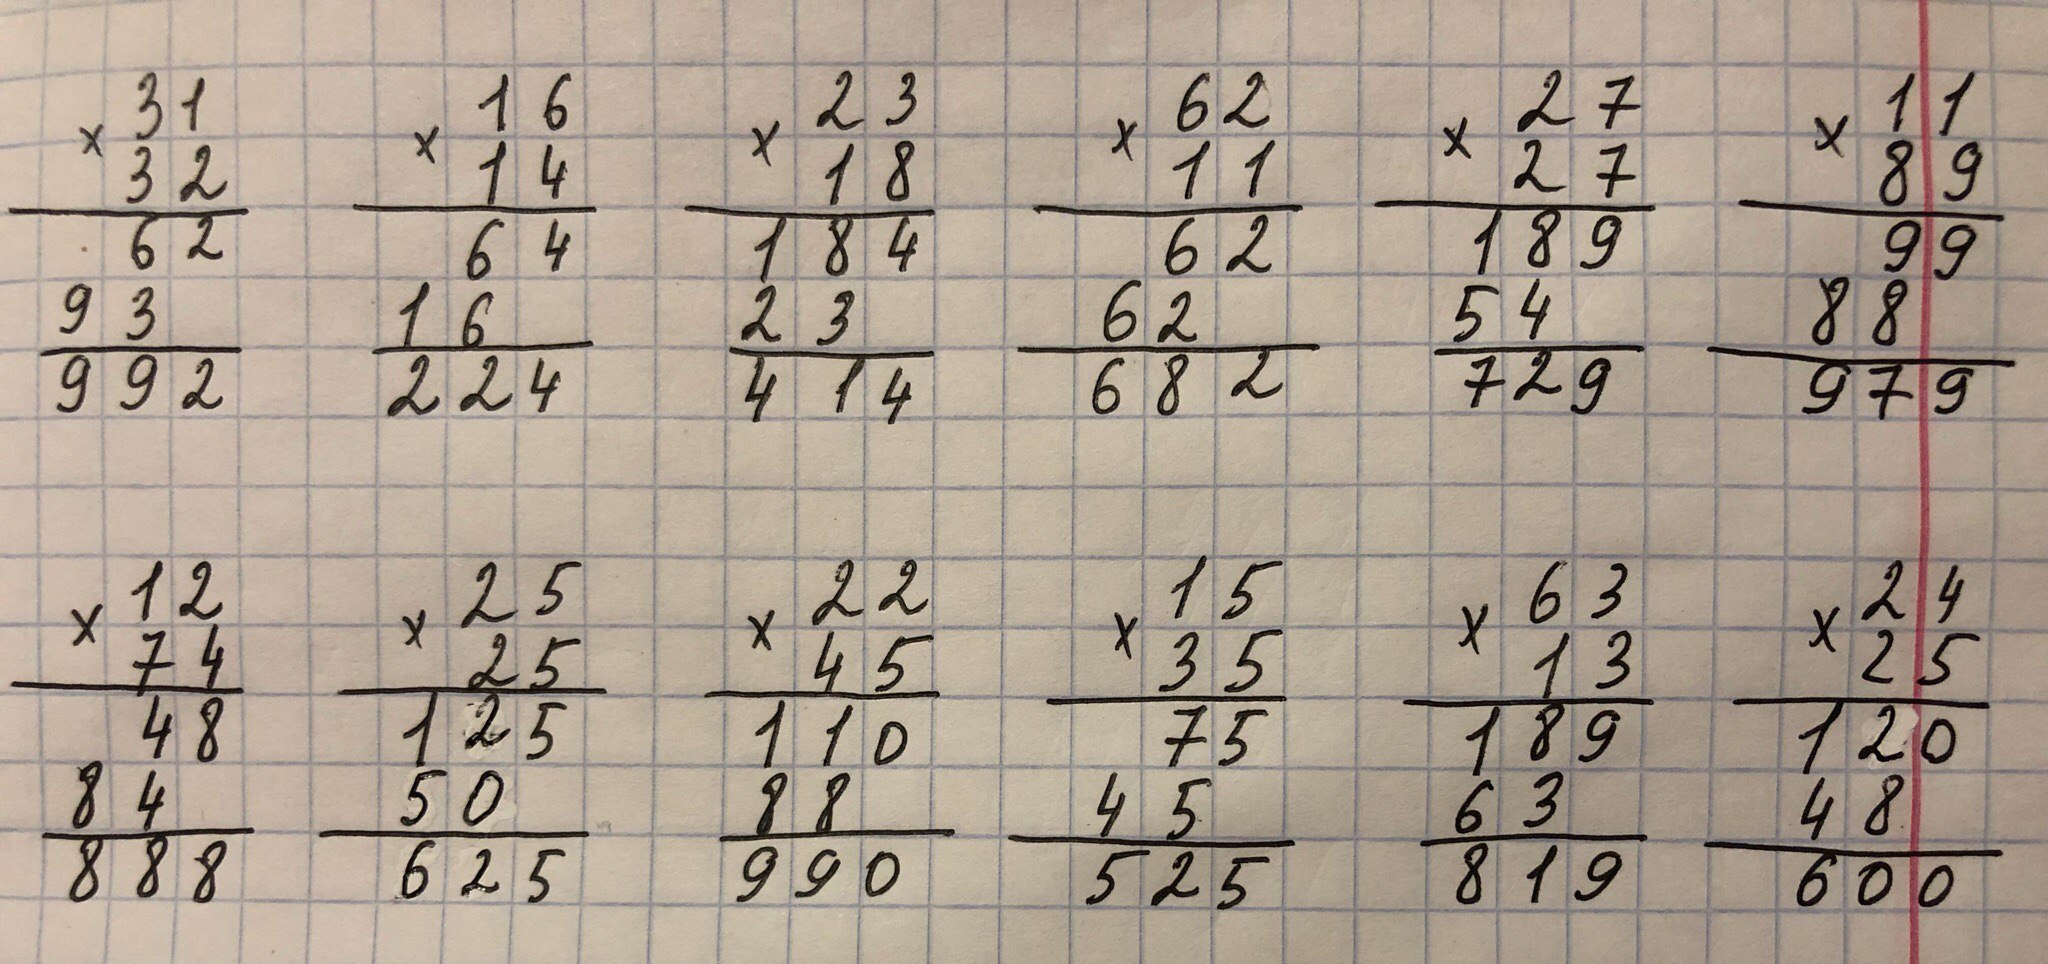 × 31 × 16 × 23 × 62 × 27 × 11
32 14 18 11 27 89
62 64 184 62 189 99
93 16 23 62 54 88
992 224 414 682 729 979
× 12 × 25 × 22 × 15 × 63 × 24
74 25 45 35 13 25
48 125 110 75 189 120
84 50 88 45 63 48
888 625 990 525 819 600